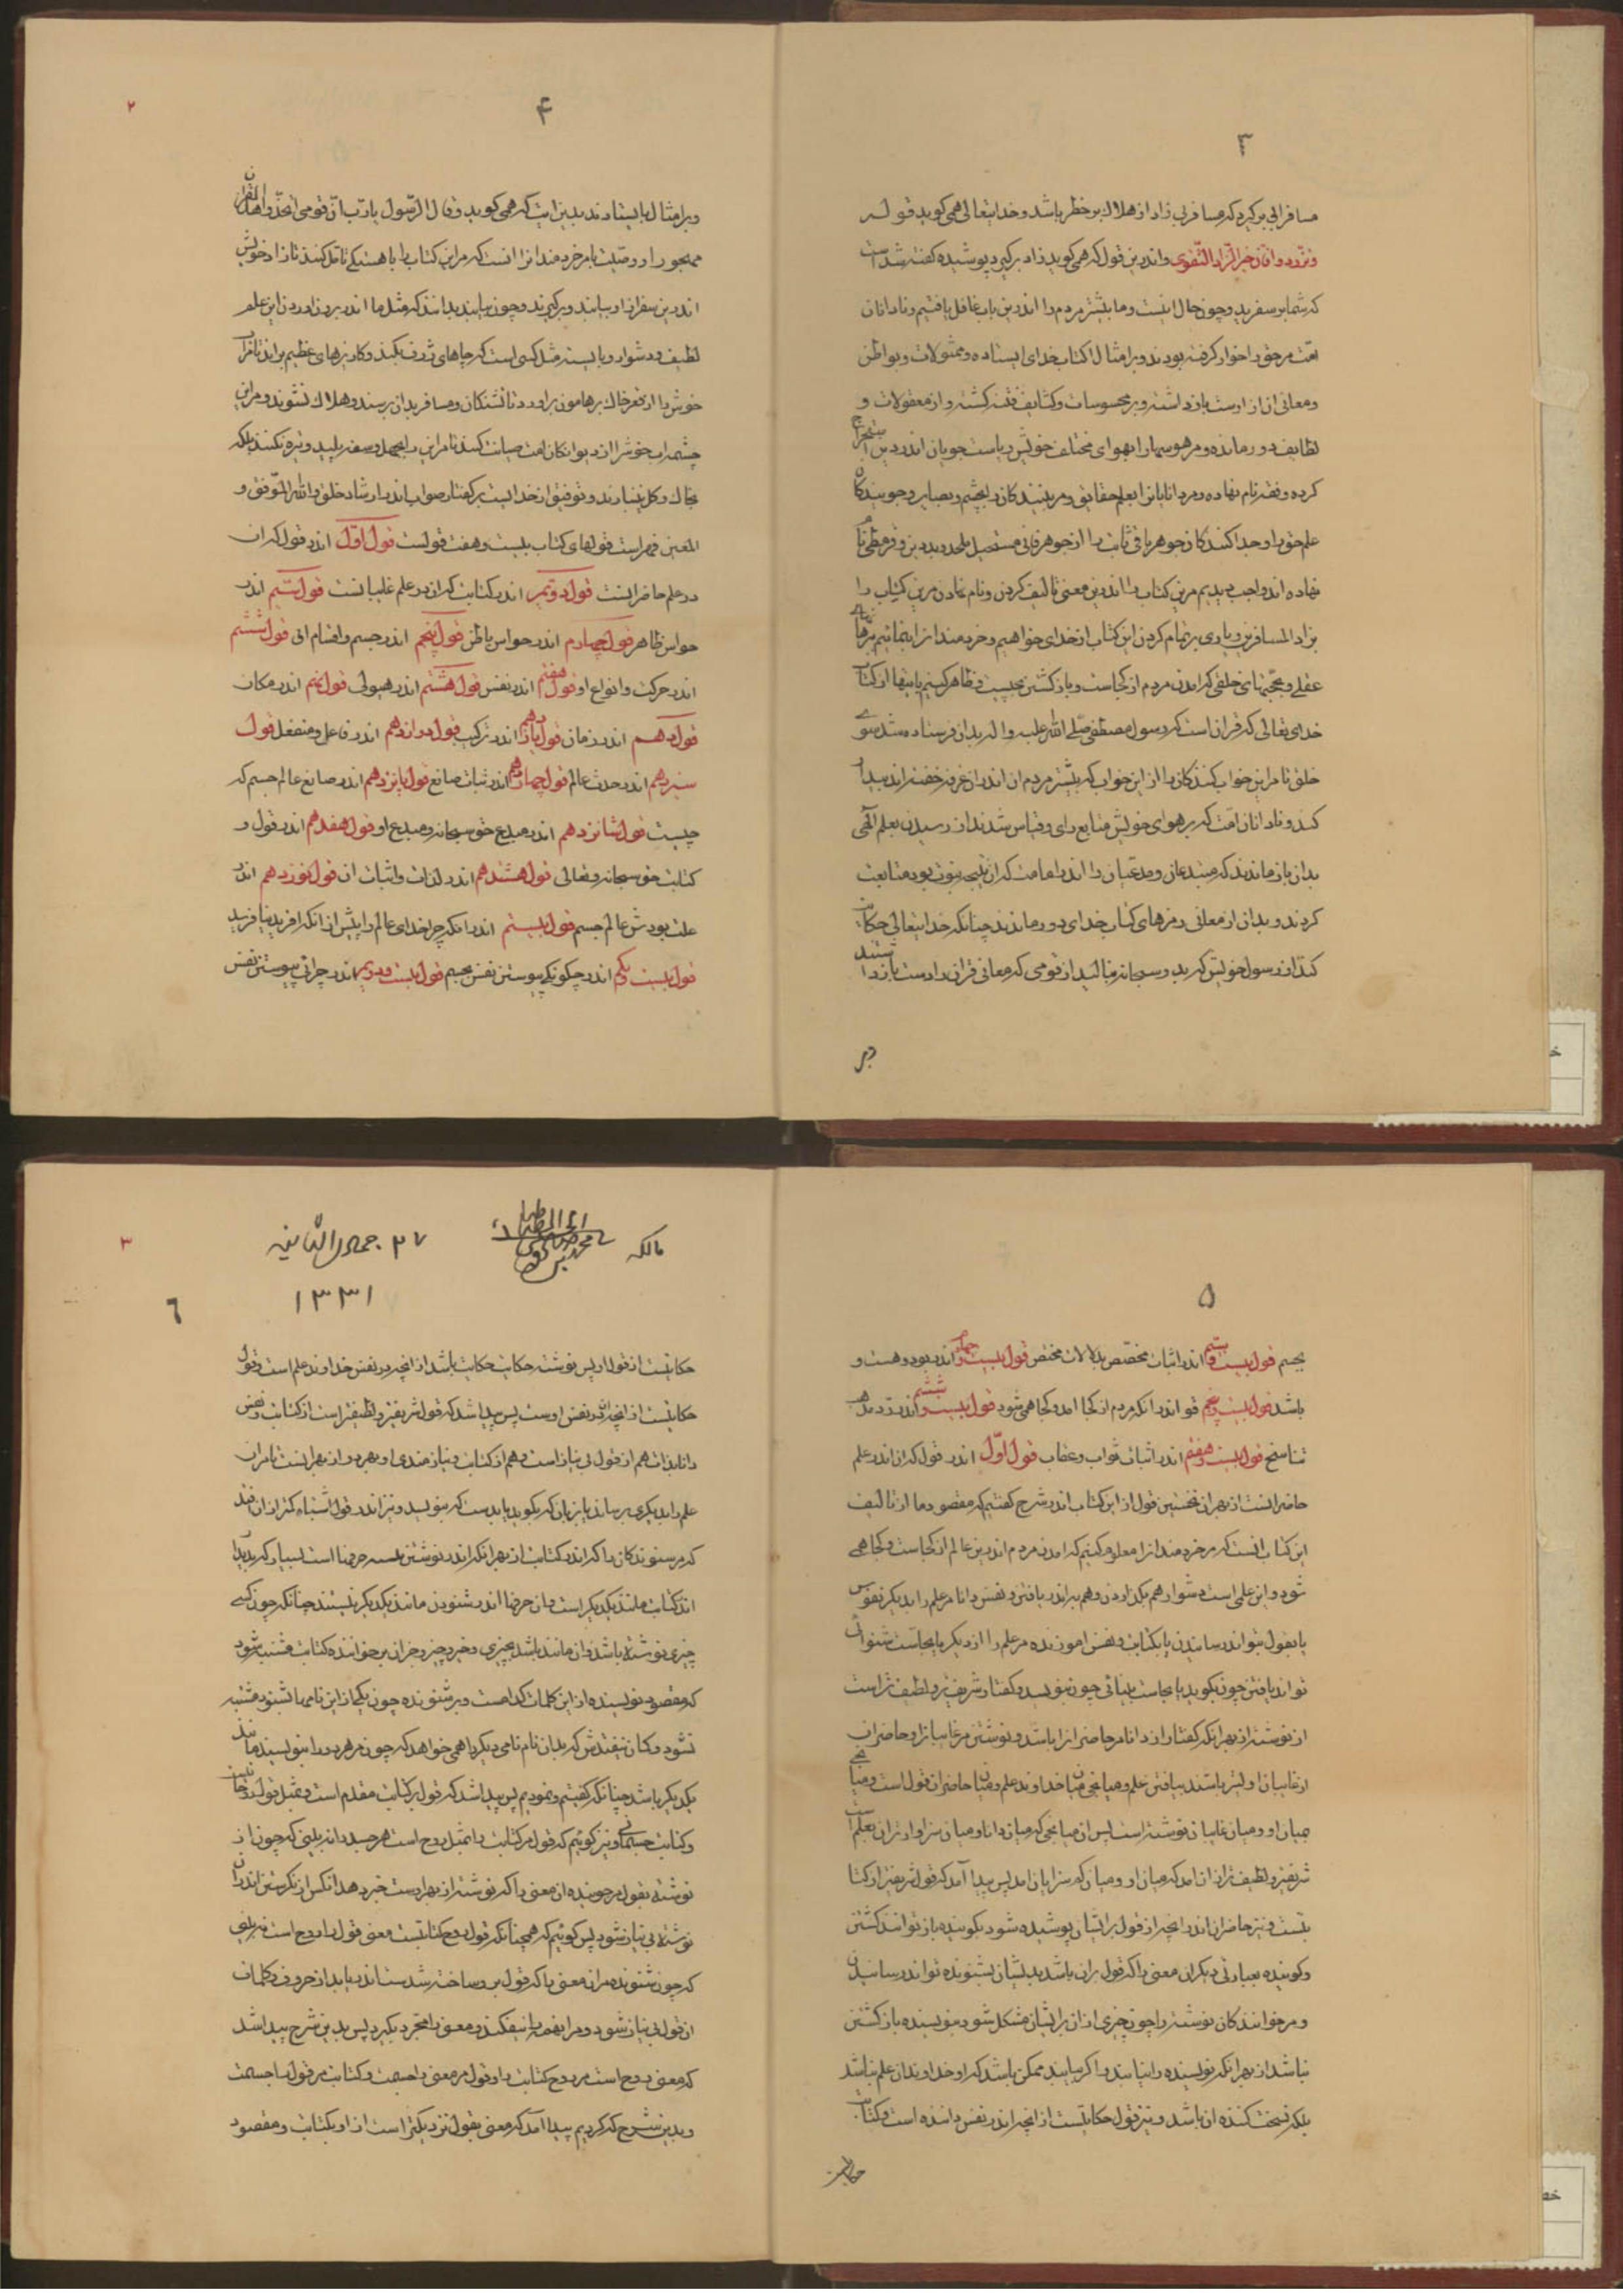 ۳
مسافرانی برگیرد که مسافر بی زاد از هلاک بر خطر باشد و خدایتعالی همی کوید قوله
وتزودوا فان خیر الزاد التقوی و اندرین قول که همی کوید زاد برکیرید پوشیده کفته شده است
که شما بر سفرید و چون حال اینست و ما بیشتر مردم را اندرین باب غافل یافتیم و نادانان
امت مر حق را خوار کرفته بودند و بر امثال کتاب خدای ایستاده و ممثولات و بواطن
و معانی آن از دست بازداشته و بر محسوسات و کثایف فتنه کشته و از معقولات و
لطایف دور مانده و مر هوسها را بهوای مختلف خویش ریاست جویان اندر دین استخراج
کرده و فقه نام نهاده و مر دانایانرا بعلم حقایق و مر بینندکان را بچشم بصایر و جویندکان
علم حق را و جدا کنندکان جوهر باقی ثابت را از جوهر فانی مستحیل ملحد و بد دین و قرمطی نام
نهاده اند واجب دیدیم مرین کتاب را اندرین معنی تالیف کردن و نام نهادن مرین کتاب را
بزاد المسافرین و یاری بر تمام کردن این کتاب از خدای خواهیم و خردمندانرا بنمائیم برهانهاء
عقلی و حجتهای خلقی که آمدن مردم از کجاست و بازکشتن بچیست و ظاهر کنیم بایتها از کتاب
خدای تعالی که قران است که رسول مصطفی صلی الله علیه و اله بدان فرستاده شد سوی
خلق تا مر این خواب کنندکان را از این خواب که بیشتر مردم ان اندر ان غرقه خفته اند بیدار
کند و نادانان امت که بر هوای خویش متابع رای و قیاس شدند از رسیدن بعلم الهی
بدان بازماندند که مبتدعان و مدعیان را اندر امامت که ان نتیجه نبوت بود متابعت
کردند و بدان از معانی رمزهای کتاب خدای دور ماندند چنانکه خدایتعالی حکایت
کند از رسول خویش که بدو سبحانه بنالید از قومی که معانی قران را دست بازداشتند
۲
۴
و بر امثال بایستادند بدین ایت که همی کوید و قال الرسول یا رب ان قومی اتخذوا هذا القران
مهجورا و وصیت ما مر خردمندانرا انست که مر این کتاب را باهستکی تامل کنند تا زاد خویش
اندرین سفر ازو بیابند و برکیرند و چون بیابند بدانند که مثل ما اندر برون آوردن این علم
لطیف و دشوار و بایسته مثل کسی است که چاهای ژرف بکند و کاریزهای عظیم براند تا مر آب
خوش را از قعر خاک بر هامون براورد تا تشنکان و مسافران بدان برسند و هلاک نشوند و مر این
چشمه اب خوش را از دیوانکان امت صیانت کنند تا مر این را بجهل و سفه پلید و تیره نکنند بلکه
بخاک و کل نینبارند و توفیق از خدایست بر کفتار صواب اندر ارشاد خلق و الله الموفق و
المعین فهرست قولهای کتاب بیست و هفت قولست قول اول اندر قول که ان
در علم حاضرانست قول دوم اندر کتابت که ان در علم غایبانست قول سیم اندر
حواس ظاهر قول چهارم اندر حواس باطن قول پنجم اندر جسم و اقسام ان قول ششم
اندر حرکت و انواع او قول هفتم اندر نفس قول هشتم اندر هیولی قول نهم اندر مکان
قول دهم اندر زمان قول یازدهم اندر ترکیب قول دوازدهم اندر فاعل و منفعل قول
سیزدهم اندر حدث عالم قول چهاردهم اندر اثبات صانع قول پانزدهم اندر صانع عالم جسم که
چیست قول شانزدهم اندر مبدع حق سبحانه و مبدع او قول هفدهم اندر قول و
کتابت حق سبحانه و تعالی قول هشتدهم اندر لذات و اثبات ان قول نوزدهم اندر
علت بودش عالم جسم قول بیستم اندر انکه چرا خدای عالم را پیش از انکه افرید نیافرید
قول بیست یکم اندر چکونکی پیوستن نفس بجسم قول بیست و دویم اندر چرائی پیوستن نفس
۵
بجسم قول بیست و سیم اندر اثبات مخصص بدلالات مختص قول بیست و چهارم اندر بود و هست و
باشد قول بیست و پنجم اندر انکه مردم از کجا امد و کجا همی شود قول بیست و ششم اندر رد مذهب
تناسخ قول بیست و هفتم اندر اثبات ثواب و عقاب قول اول اندر قول که ان اندر علم
حاضرانست از بهر ان نخستین قول از این کتاب اندر شرح کفتیم که مقصود ما از تالیف
این کتاب انست که مر خردمندانرا معلوم کنیم که امدن مردم اندرین عالم از کجاست و کجا همی
شود و این علمی است دشوار هم بکذاردن و هم به اندر یافتن و نفس دانا مر علم را بدیکر نفوس
یا بقول تواند رسانیدن یا بکتابت و نفس اموزنده مر علم را از دیکر یا بحاست شنوائی
تواند یافتن چون بکوید یا بحاست بینائی چون بنویسد و کفتار شریفتر و لطیف تر است
از نوشته از بهر انکه کفتار از دانا مر حاضرانرا باشد و نوشتن مر غایبانرا و حاضران
از غایبان اولیتر باشند بیافتن علم و میانجی میان خداوند علم و میان حاضران قول است و میانجی
میان او و میان غایبان نوشته است پس ان میانجی که میان دانا و میان سزاوارتران بعلم است
شریفتر و لطیف تر از ان امد که میان او و میان کم سزایان امد پس پیدا آمد که قول شریفتر از کتابتست
و نیز حاضران اندر انچه از قول بر ایشان پوشیده شود بکوینده باز توانند کشتن
و کوینده بعبارتی دیکر ان معنی را که قول بران باشد بدیشان بشنونده تواند رسانیدن
و مر خوانندکان نوشته را چون چیزی از ان بر ایشان مشکل شود بنویسنده باز کشتن
نباشد از بهر انکه نویسنده را نیابند و اکر بیابند ممکن باشد که او خداوند ان علم نباشد
بلکه نسخت کننده ان باشد و نیز قول حکایتست از انچه اندر نفس داننده است و کتابت
حکایت
۳
مالکه
۲۷ جمادی الثانیه
۱۳۳۱
٦
حکایتست از قول او پس نوشته حکایت حکایت باشد از انچه در نفس خداوند علم است و قول
حکایتست از انچه اندر نفس اوست پس پیدا شد که قول شریفتر و لطیفتر است از کتابت و نفس
دانا بذات هم از قول بی نیاز است و هم از کتابت و نیازمندی او بهر دو از بهر انست تا مر ان
علم را بدیکری برساند یا بزبان که بکوید یا بدست که بنویسد و نیز اندر قول اشتباه کمتر از ان افتد
که مر شنوندکان را که اندر کتابت از بهر انکه اندر نوشتن حرفها است بسیار که بدیدار
اندر کتابت مانند یکدیکر است و ان حرفها اندر شنودن مانند یکدیکر نیستند چنانکه چون کسی
چیزی نوشته باشد و ان مانند باشد بچیزی و خبر و چیز و جز ان بر خواننده کتابت مشتبه شود
که مقصود نویسنده از این کلمات کدامست و بر شنونده چون یکی از این نامها بشنود مشتبه
نشود و کمان نیفتدش که بدان نام نامی دیکر را همی خواهد که چون مر هر دو را بنویسند مانند
یکدیکر باشد چنانکه کفتیم و نمودیم پس پیدا شد که قول بر کتابت مقدم است و بمثل قول روحانیست
و کتابت جسمانی و نیز کوئیم که قول مر کتابت را بمثل روح است مر جسد را نه بینی که چون از
نوشته بقول مر جوینده ان معنی را که نوشته از بهر اوست خبر دهد انکس از نکرستن اندر ان
نوشته بی نیاز شود پس کوئیم که همچنانکه قول روح کتابتست معنی قول را روح است نه بینی
که چون شنونده مر ان معنی را که قول برو ساخته شدست اندر یابد از حروف و کلمات
ان قول بی نیاز شود و مر انهمه را بیفکند و معنی را مجرد بکیرد پس بدین شرح پیدا شد
که معنی روح است مر روح کتابت را و قول مر معنی را جسمت و کتابت مر قول را جسمت
و بدین شرح که کردیم پیدا آمد که معنی بقول نزدیکتر است از او بکتابت و مقصود